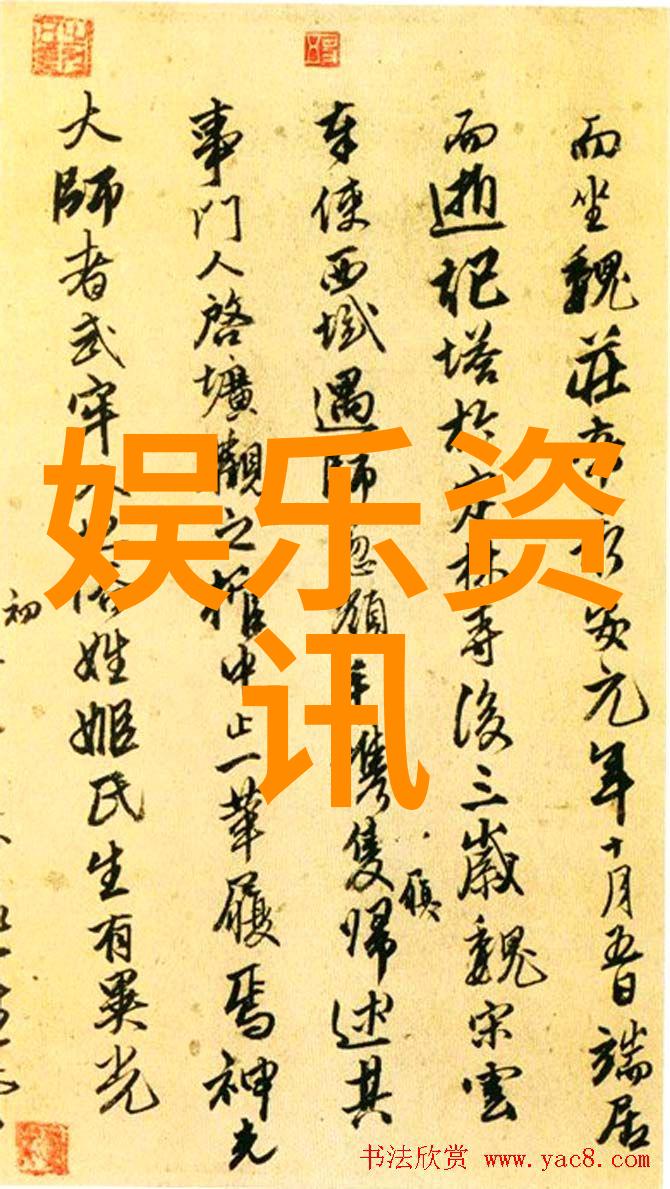 而坐魏莊帝永安元年十月五日端居
而逝記塔於定林寺後三歲魏宋雲
奉使西域遇師忽嶺手攜隻歸述其
事門人啓壙觀之棺中止一革履焉神光
大師者武牢人也俗姓姬氏生有異光
初
娱乐资
讯
书法欣赏 www.yac8.com